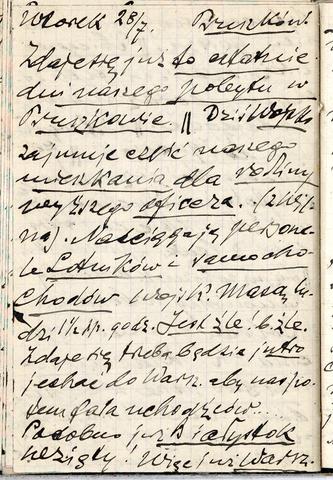 Wtorek 28/7. Pruszków.
Zdaje się już to ostatnie
dni naszego pobytu w
Pruszkowie. || Dziś Wojsko
zajmuje część naszego
mieszkania dla rodziny
wyższego oficera. (
na). Naściągają persona-
le Lotników i samocho-
chodów wojsk. Masa lu-
dzi Jest źle! b. źle.
Zdaje się trzeba będzie jutro
jechać do Warsz. aby nas po-
tem fala uchodźców....
Podobno już Białystok
wzięty! Więc już Warsz.